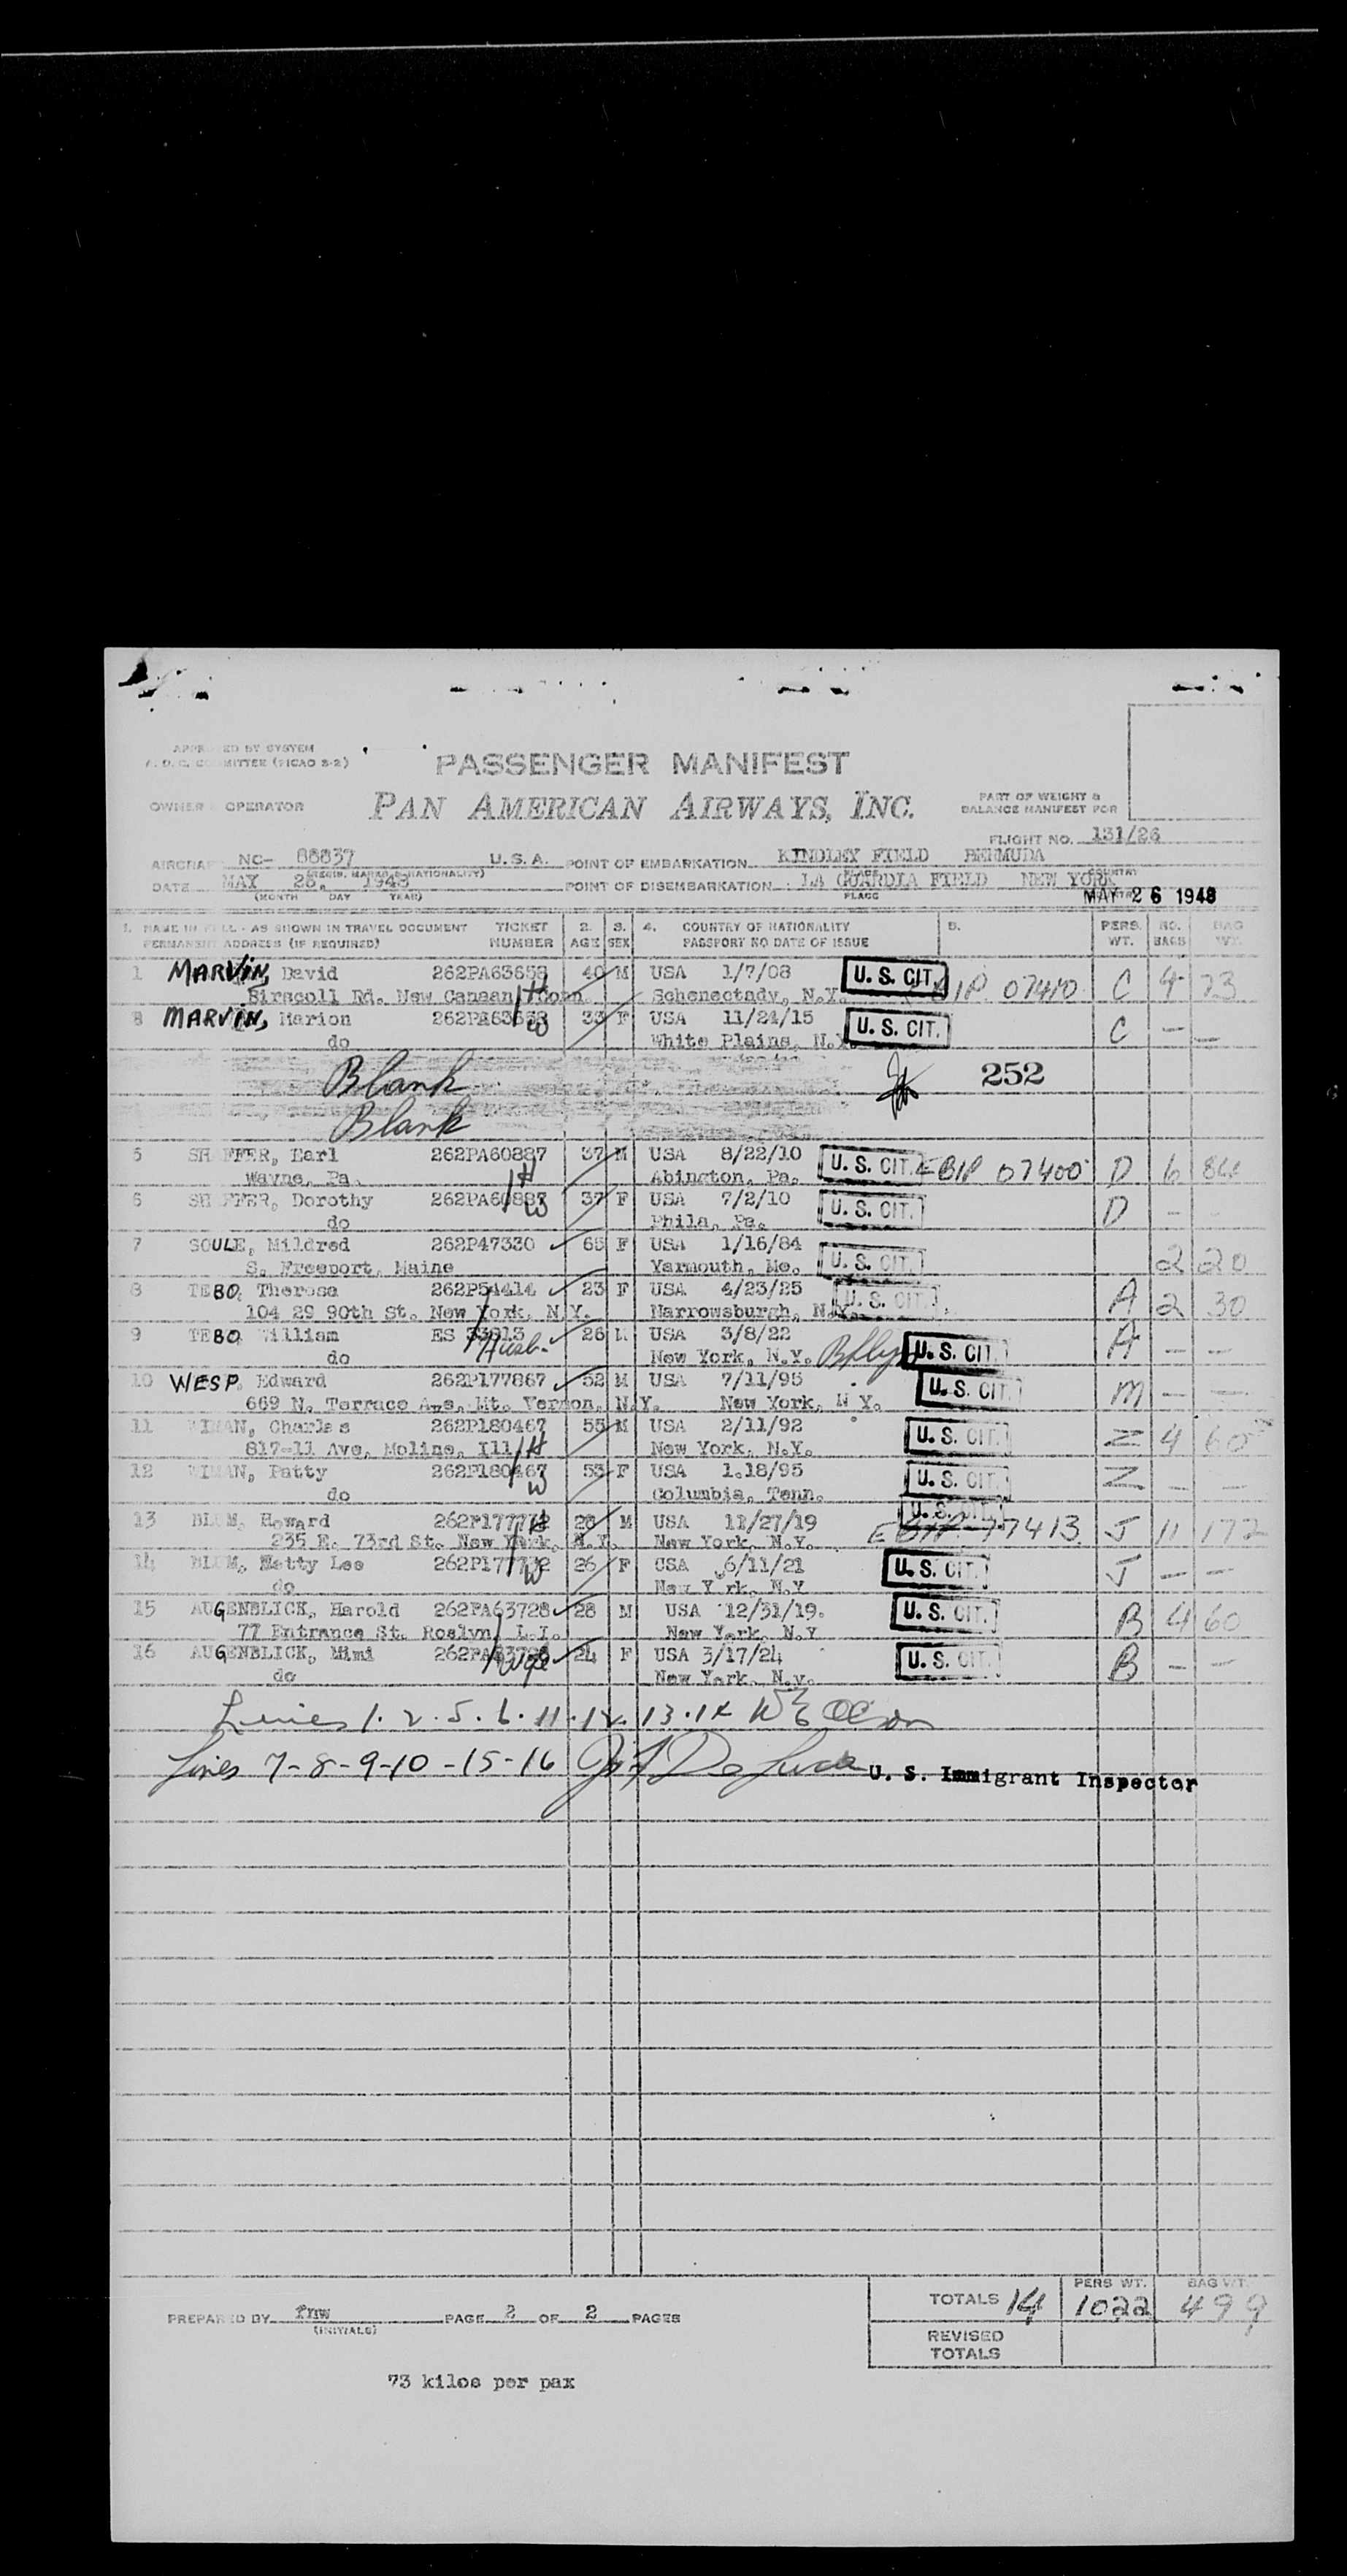 APPROVED BY SYSTEM
A. D. C. COMMITTEE (PICAO 8-2)
PASSENGER MANIFEST
OWNER OPERATOR PAN AMERICAN AIRWAYS, INC.
PART OF WEIGHT &
BALANCE MANIFEST FOR
FLIGHT NO. 131/26
AIRCRAFT NC- 88837 U.S.A. POINT OF EMBARKATION KINDLEY FIELD BERMUDA
(REGIS. MARKS & NATIONALITY) PLACE COUNTRY
DATE MAY 26, 1948 POINT OF DISEMBARKATION LA GUARDIA FIELD NEW YORK
(MONTH DAY YEAR) PLACE
MAY 26 1948
1. NAME IN FULL - AS SHOWN IN TRAVEL DOCUMENT TICKET 2. 3. 4. COUNTRY OF NATIONALITY 5. PERS. NO. BAG
PERMANENT ADDRESS (IF REQUIRED) NUMBER AGE SEX PASSPORT NO DATE OF ISSUE WT. BAGS WT.
1 MARVIN, David 262PA63658 40 M USA 1/7/08 U. S. CIT. C 4 73
Rd. New Canaan, Conn. H Schenectady, N.Y. EBIP 07410
MARVIN, Marion 262PA63658 33 F USA 11/24/15 U. S. CIT. C — —
do W White Plains, N.Y.
Blank 252
Blank
5 SHAFFER, Earl 262PA60887 37 M USA 8/22/10 U. S. CIT. EBIP 07400 D 6 84
Wayne, Pa. H Abington, Pa.
6 SHAFFER, Dorothy 262PA60887 37 F USA 7/2/10 U. S. CIT. D - -
do W Phila, Pa.
7 SOULE, Mildred 262P47330 65 F USA 1/16/84 U. S. CIT. 2 20
S. Freeport, Maine Yarmouth, Me.
8 TEBO, Theresa 262P54414 23 F USA 4/23/25 U. S. CIT. A 2 30
104 29 90th St. New York, N.Y. Narrowsburgh, N.Y.
9 TEBO William ES 33913 26 M USA 3/8/22 U. S. CIT. A — —
do Husb. New York, N.Y. Bklyn
10 WESP, Edward 262P177867 52 M USA 7/11/95 U. S. CIT. M — —
669 N. Terrace Ave, Mt. Vernon, N.Y. New York, N Y.
11 WIMAN, Charles 262P180467 55 M USA 2/11/92 U. S. CIT. Z 4 60
817-11 Ave, Moline, Ill H New York, N.Y.
12 WIMAN, Patty 262P180467 53 F USA 1.18/95 U. S. CIT. Z — —
do W Columbia, Tenn.
13 BLUM, Howard 28 M USA 11/27/19 U. S. CIT. J 11 172
235 E. 73rd St. New York, N.Y. H New York, N.Y.
14 BLUM, Lee 26 F USA 6/11/21 U. S. CIT. J — —
do W New Y rk, N.Y
15 AUGENBLICK, Harold 262PA63728 28 M USA 12/31/19. U. S. CIT. B 4 60
77 Entrance St. Roslyn, L.I. New York, N.Y
16 AUGENBLICK, Mimi 262PA63728 24 F USA 3/17/24 U. S. CIT. B — —
do Wife New York, N.y.
Lines 1. 2. 5. 6. 11. 12. 13. 14
Lines 7-8-9-10-15-16
U. S. Immigrant Inspector
PERS WT. BAG WT.
TOTALS 14 1022 499
PREPARED BY fnw PAGE 2 OF 2 PAGES
(INITIALS)
REVISED
TOTALS
73 kilos per pax